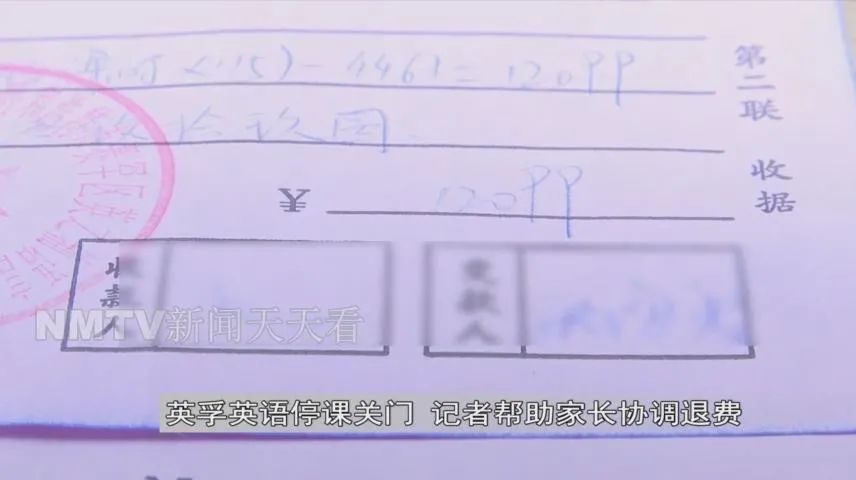 课时(115)-4461=12099
拾玖圆
¥ 12099
第二联 收据
收款人
交款人
NMTV新闻天天看
英孚英语停课关门 记者帮助家长协调退费